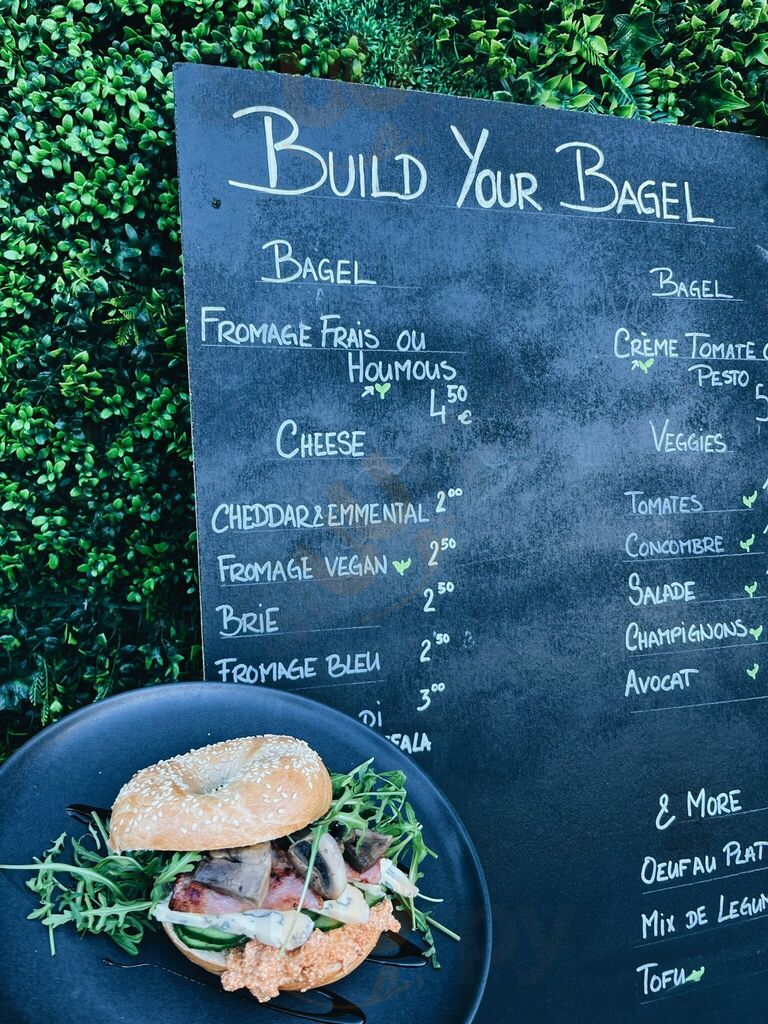 BUILD YOUR BAGEL
BAGEL
FROMAGE FRAIS OU
HOUMOUS
4 50 €
CHEESE
CHEDDAR & EMMENTAL 2 00
FROMAGE VEGAN 2 50
BRIE 2 50
FROMAGE BLEU 2 50
DI 3 00
BAGEL
CRÈME TOMATE
PESTO
5
VEGGIES
TOMATES
CONCOMBRE
SALADE
CHAMPIGNONS
AVOCAT
& MORE
OEUF AU PLAT
MIX DE
TOFU